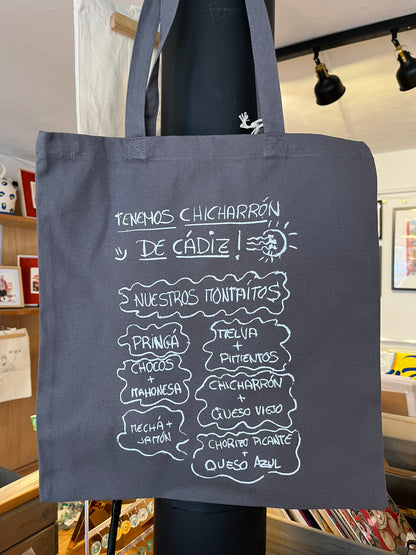 TENEMOS CHICHARRÓN
DE CÁDIZ!
NUESTROS MONTAÍTOS
PRINGÁ
MELVA
+
PIMIENTOS
CHOCOS
+
MAHONESA
CHICHARRÓN
+
QUESO VIEJO
MECHÁ +
JAMÓN
CHORIZO PICANTE
+
QUESO AZUL